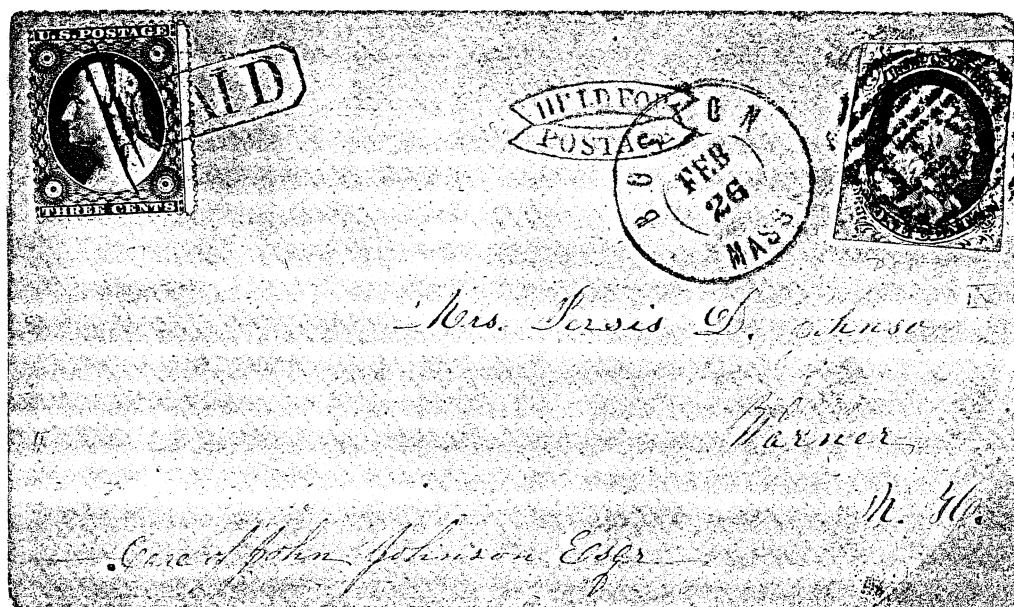 U.S. POSTAGE
THREE CENTS
AID
HELD FOR
POSTAGE
BOSTON
FEB
26
MASS
Mrs. Persis D. Johnso
Warner
N. H.
Care of John Johnson Esqr